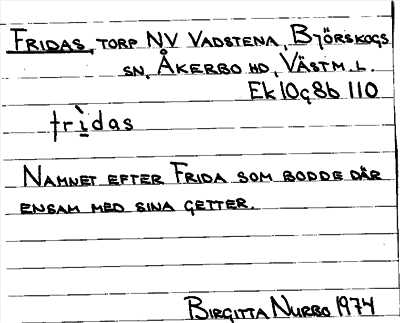 FRIDAS, TORP NV VADSTENA, BJÖRSKOGS
SN, ÅKERBO HD, VÄSTM. L.
EK 10g8b 110
frìdas
NAMNET EFTER FRIDA SOM BODDE DÄR
ENSAM MED SINA GETTER.
BIRGITTA NURBO 1974